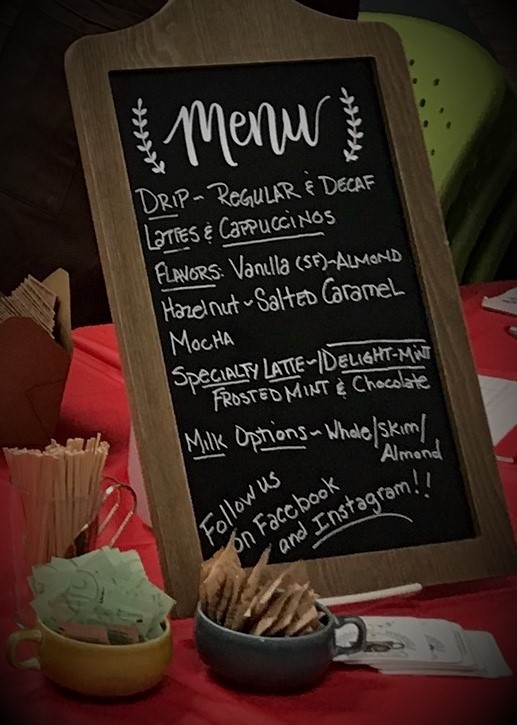 Menu
DRIP - REGULAR & DECAF
LATTES & CAPPUCCINOS
FLAVORS: Vanilla (SF) - ALMOND
Hazelnut - SALTED CARAMEL
MOCHA
SPECIALTY LATTE - DELIGHT-MINT
FROSTED MINT & Chocolate
Milk Options - Whole/SKIM/
Almond
Follow us
on Facebook
and Instagram!!